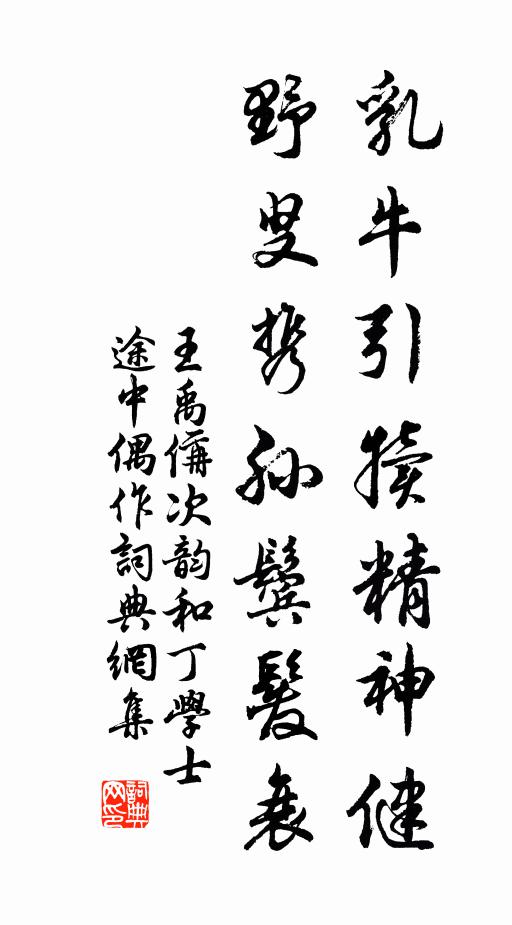 乳牛引犢精神健
野叟携孙鬓髮衰
王禹偁次韵和丁學士
途中偶作詞典網集
詞典网印